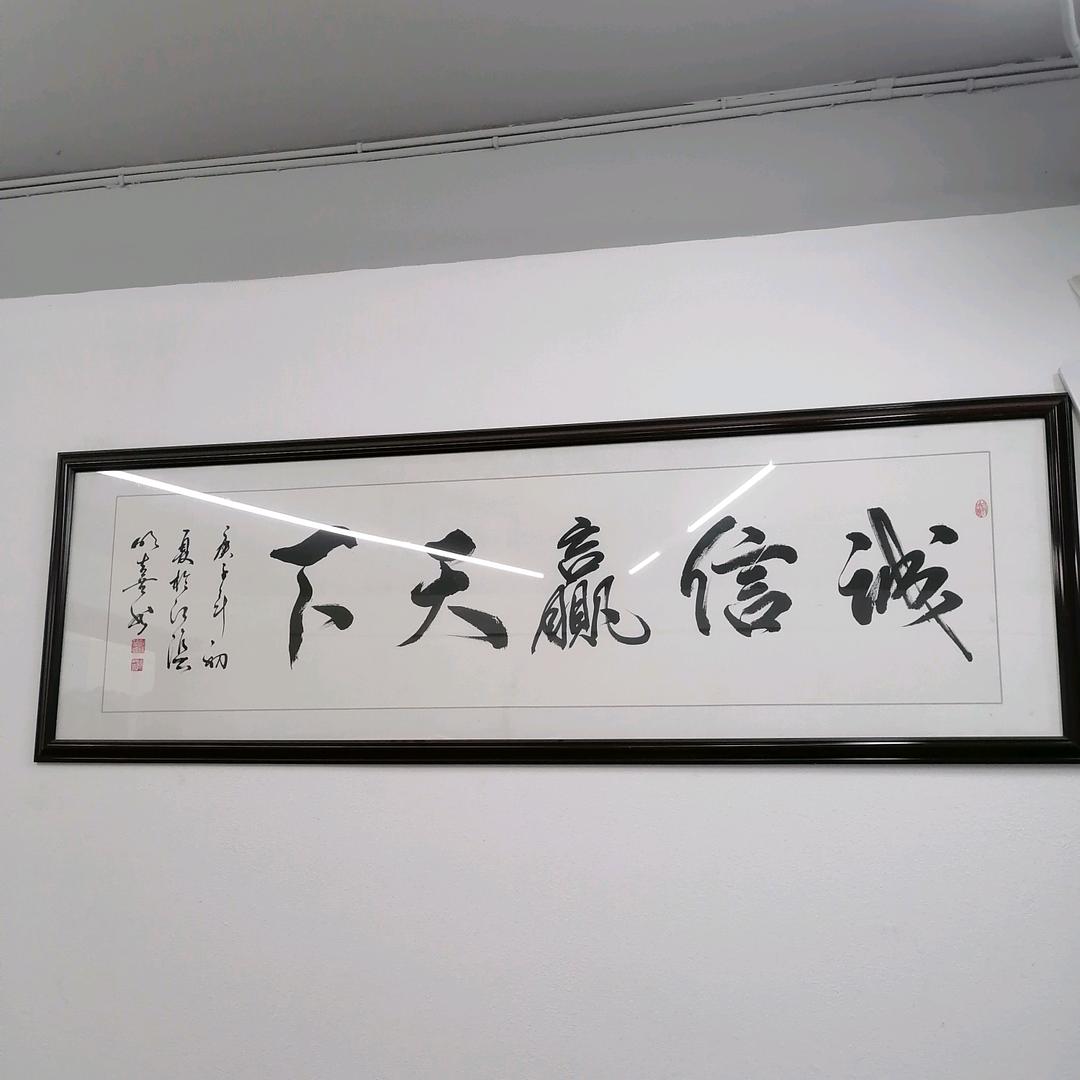 誠信贏天下
庚子年初
夏於江濱
明喜書